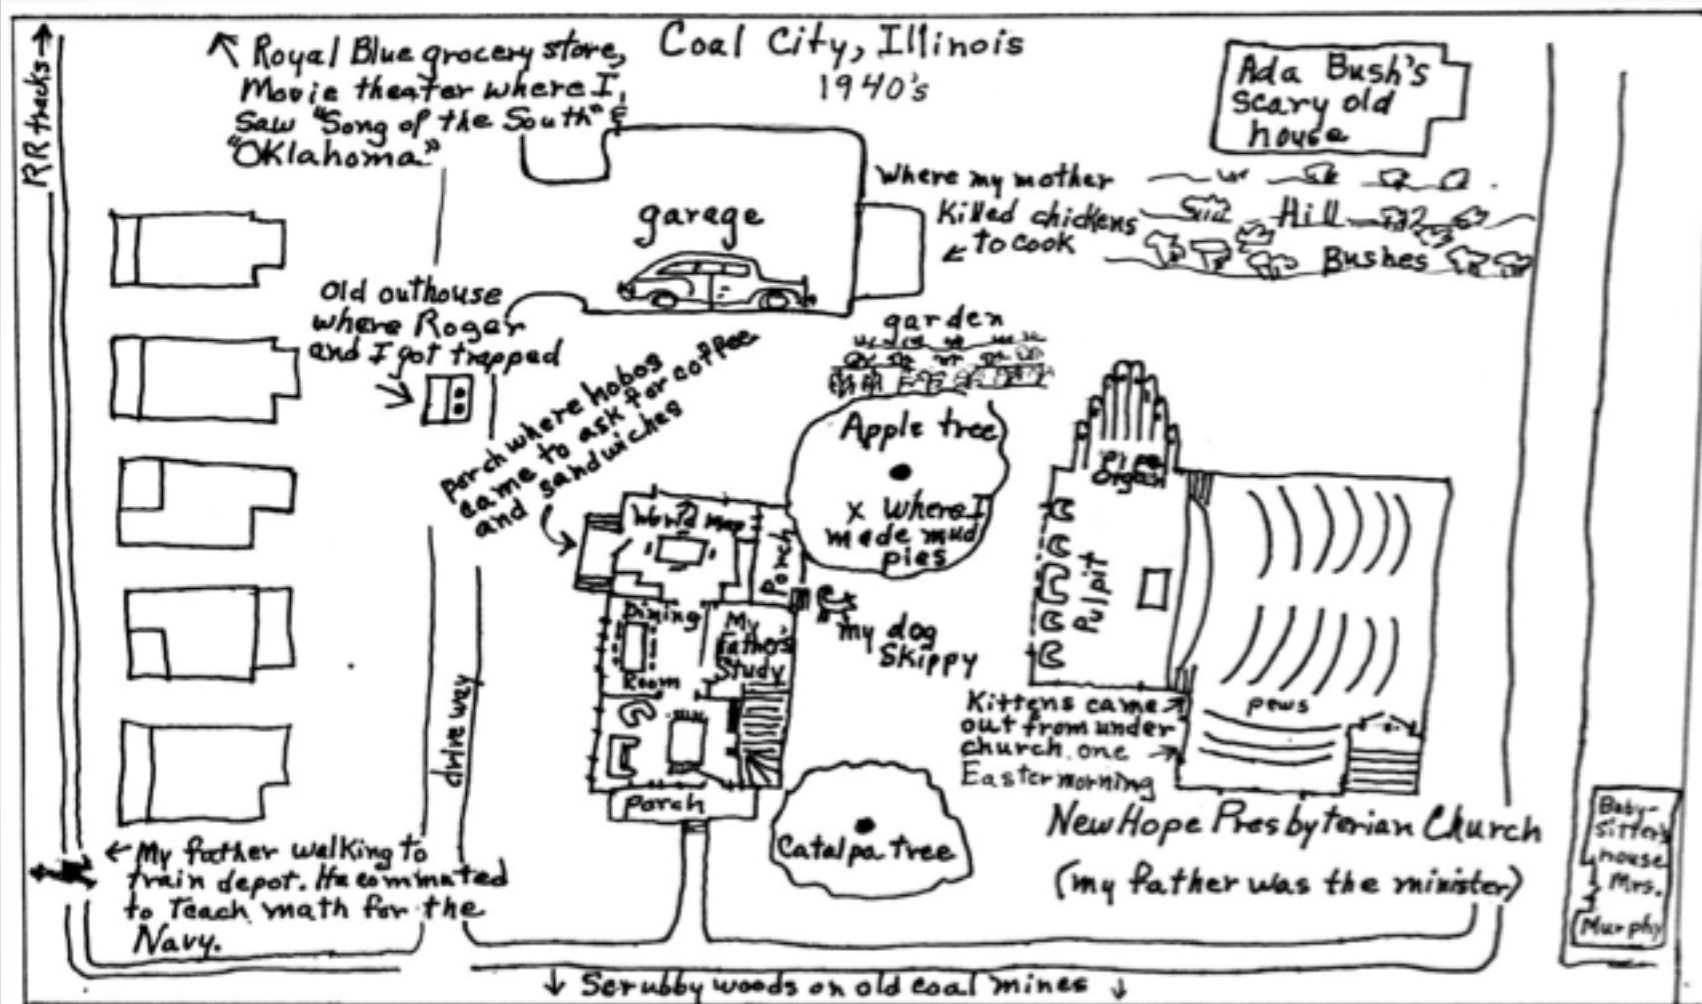 Coal City, Illinois
1940's
RR tracks
Royal Blue grocery store,
Movie theater where I
saw "Song of the South" &
"Oklahoma"
Ada Bush's
scary old
house
where my mother
killed chickens
to cook
Hill
Bushes
garage
garden
Old outhouse
where Roger
and I got trapped
porch where hobos
came to ask for coffee
and sandwiches
Apple tree
x where I
made mud
pies
World Map
Porch
Dining
Room
My
Father's
Study
my dog
Skippy
Pipe
Organ
Pulpit
pews
Kittens came
out from under
church one
Easter morning
driveway
porch
Catalpa Tree
New Hope Presbyterian Church
(my father was the minister)
Baby-
sitter's
house
Mrs.
Murphy
My father walking to
train depot. He commuted
to Teach math for the
Navy.
Scrubby woods on old coal mines